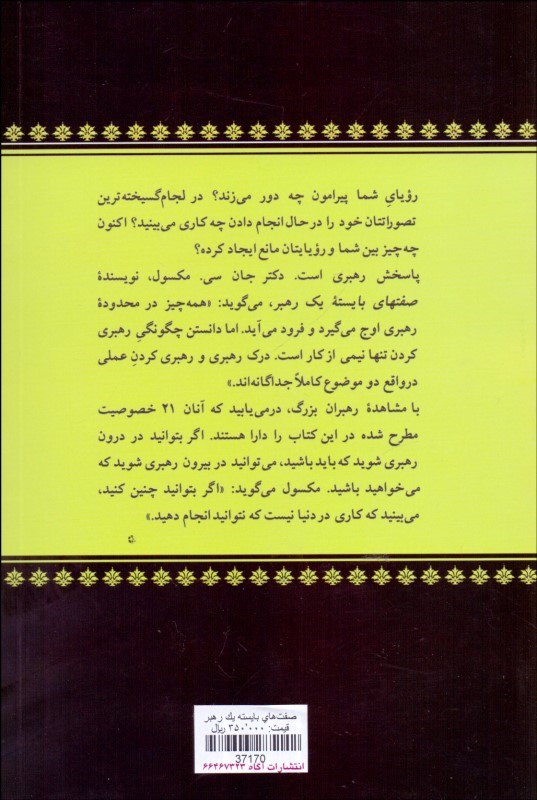 رؤیایِ شما پیرامون چه دور می‌زند؟ در لجام‌گسیخته‌ترین
تصوراتتان خود را در حال انجام دادن چه کاری می‌بینید؟ اکنون
چه‌چیز بین شما و رؤیایتان مانع ایجاد کرده؟
پاسخش رهبری است. دکتر جان سی. مکسول، نویسندهٔ
صفتهای بایستهٔ یک رهبر، می‌گوید: «همه‌چیز در محدودهٔ
رهبری اوج می‌گیرد و فرود می‌آید. اما دانستن چگونگیِ رهبری
کردن تنها نیمی از کار است. درک رهبری و رهبری کردنِ عملی
درواقع دو موضوع کاملاً جداگانه‌اند.»
با مشاهدهٔ رهبران بزرگ، درمی‌یابید که آنان ۲۱ خصوصیت
مطرح شده در این کتاب را دارا هستند. اگر بتوانید در درون
رهبری شوید که باید باشید، می‌توانید در بیرون رهبری شوید که
می‌خواهید باشید. مکسول می‌گوید: «اگر بتوانید چنین کنید،
می‌بینید که کاری در دنیا نیست که نتوانید انجام دهید.»
صفت‌هاي بایسته یك رهبر
قیمت: ۳۵۰٬۰۰۰ ریال
37170
انتشارات آگاه ۶۶۴۶۷۳۲۳